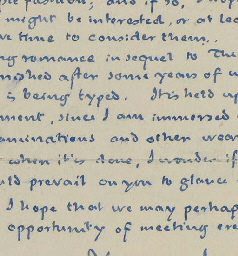 fashion; and if so, I hope
might be interested, or at lea
ve time to consider them.
ng romance in sequel to The
nished after some years of w
is being typed. It is held up
ment, since I am immersed
aminations and other wear
when it is done, I wonder if
uld prevail on you to glance
I hope that we may perhap
opportunity of meeting ere